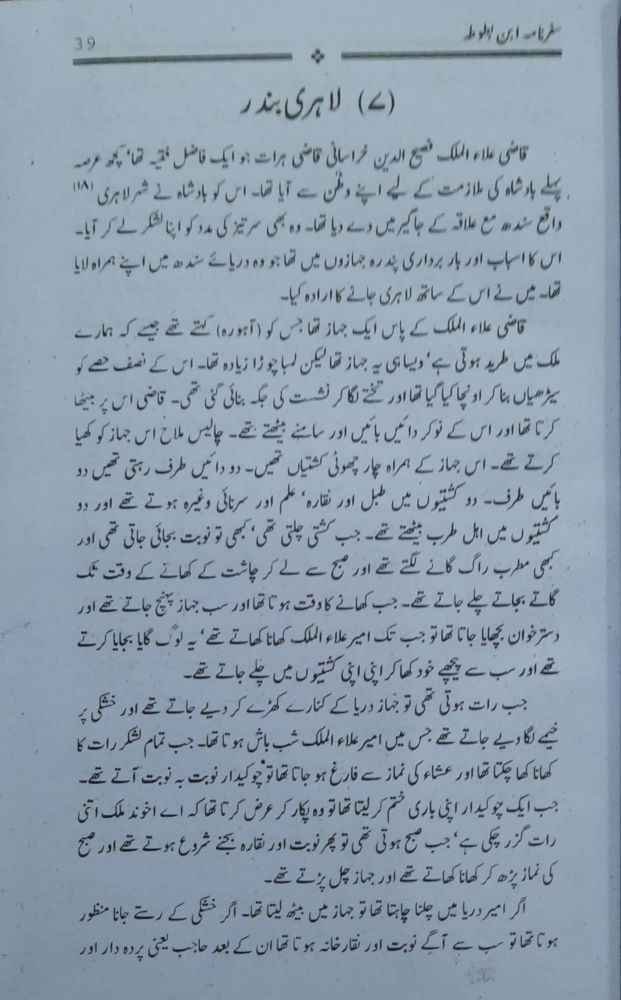 سفرنامہ ابن بطوطہ
39
(۷) لاہری بندر
قاضی علاء الملک فصیح الدین خراسانی قاضی ہرات جو ایک فاضل فقیہ تھا‘ کچھ عرصہ
پہلے بادشاہ کی ملازمت کے لیے اپنے وطن سے آیا تھا۔ اس کو بادشاہ نے شہر لاہری (۱۸)
واقع سندھ مع علاقہ کے جاگیر میں دے دیا تھا۔ وہ بھی سرتیز کی مدد کو اپنا لشکر لے کر آیا۔
اس کا اسباب اور بار برداری پندرہ جہازوں میں تھا جو وہ دریائے سندھ میں اپنے ہمراہ لایا
تھا۔ میں نے اس کے ساتھ لاہری جانے کا ارادہ کیا۔
قاضی علاء الملک کے پاس ایک جہاز تھا جس کو (آہورہ) کہتے تھے جیسے کہ ہمارے
ملک میں طرید ہوتی ہے‘ ویسا ہی یہ جہاز تھا لیکن لمبا چوڑا زیادہ تھا۔ اس کے نصف حصے کو
سیڑھیاں بنا کر اونچا کیا گیا تھا اور تختے لگا کر نشست کی جگہ بنائی گئی تھی۔ قاضی اس پر بیٹھا
کرتا تھا اور اس کے نوکر دائیں بائیں اور سامنے بیٹھتے تھے۔ چالیس ملاح اس جہاز کو کھیا
کرتے تھے۔ اس جہاز کے ہمراہ چار چھوٹی کشتیاں تھیں۔ دو دائیں طرف رہتی تھیں دو
بائیں طرف۔ دو کشتیوں میں طبل اور نقارہ‘ علم اور سرنائی وغیرہ ہوتے تھے اور دو
کشتیوں میں اہل طرب بیٹھتے تھے۔ جب کشتی چلتی تھی‘ کبھی تو نوبت بجائی جاتی تھی اور
کبھی مطرب راگ گانے لگتے تھے اور صبح سے لے کر چاشت کے کھانے کے وقت تک
گاتے بجاتے چلے جاتے تھے۔ جب کھانے کا وقت ہوتا تھا اور سب جہاز پہنچ جاتے تھے اور
دسترخوان بچھایا جاتا تھا تو جب تک امیر علاء الملک کھانا کھاتے تھے‘ یہ لوگ گایا بجایا کرتے
تھے اور سب سے پیچھے خود کھا کر اپنی اپنی کشتیوں میں چلے جاتے تھے۔
جب رات ہوتی تھی تو جہاز دریا کے کنارے کھڑے کر دیے جاتے تھے اور خشکی پر
خیمے لگا دیے جاتے تھے جس میں امیر علاء الملک شب باش ہوتا تھا۔ جب تمام لشکر رات کا
کھانا کھا چکتا تھا اور عشاء کی نماز سے فارغ ہو جاتا تھا تو چوکیدار نوبت بہ نوبت آتے تھے۔
جب ایک چوکیدار اپنی باری ختم کر لیتا تھا تو وہ پکار کر عرض کرتا تھا کہ اے اخوند ملک اتنی
رات گزر چکی ہے‘ جب صبح ہوتی تھی تو پھر نوبت اور نقارہ بجنے شروع ہوتے تھے اور صبح
کی نماز پڑھ کر کھانا کھاتے تھے اور جہاز چل پڑتے تھے۔
اگر امیر دریا میں چلنا چاہتا تھا تو جہاز میں بیٹھ لیتا تھا۔ اگر خشکی کے رستے جانا منظور
ہوتا تھا تو سب سے آگے نوبت اور نقارخانہ ہوتا تھا ان کے بعد حاجب یعنی پردہ دار اور